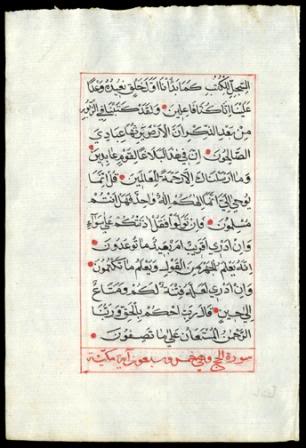 السجل للكتب كما بدأنا أول خلق نعيده وعدا
علينا إنا كنا فاعلين ولقد كتبنا في الزبور
من بعد الذكر أن الأرض يرثها عبادي
الصالحون إن في هذا لبلاغا لقوم عابدين
وما أرسلناك إلا رحمة للعالمين قل إنما
يوحى إلي أنما إلهكم إله واحد فهل أنتم
مسلمون فإن تولوا فقل آذنتكم على سواء
وإن أدري أقريب أم بعيد ما توعدون
إنه يعلم الجهر من القول ويعلم ما تكتمون
وإن أدري لعله فتنة لكم ومتاع
إلى حين قال رب احكم بالحق وربنا
الرحمن المستعان على ما تصفون
سورة الحج وهي خمس وسبعون آية مكية